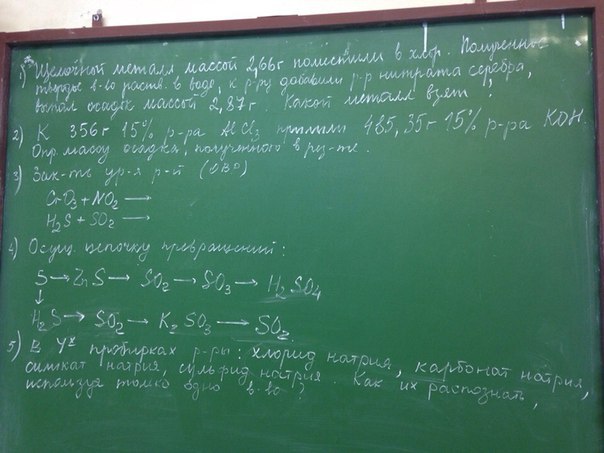 1) Щелочной металл массой 2,66г поместили в хлор. Полученное
твердое в-во раств. в воде, к р-ру добавили р-р нитрата серебра,
выпал осадок массой 2,87г Какой металл взят?
2) К 356г 15% р-ра AlCl3 прилили 485,35г 15% р-ра KOH.
Опр. массу осадка, полученного в рез-те.
3) Зак-те ур-я р-й (ОВР)
CrO3 + NO2 →
H2S + SO2 →
4) Осущ. цепочку превращений:
S → ZnS → SO2 → SO3 → H2SO4
↓
H2S → SO2 → K2SO3 → SO2
5) В 4х пробирках р-ры: хлорид натрия, карбонат натрия,
силикат натрия, сульфид натрия. Как их распознать,
используя только одно в-во?